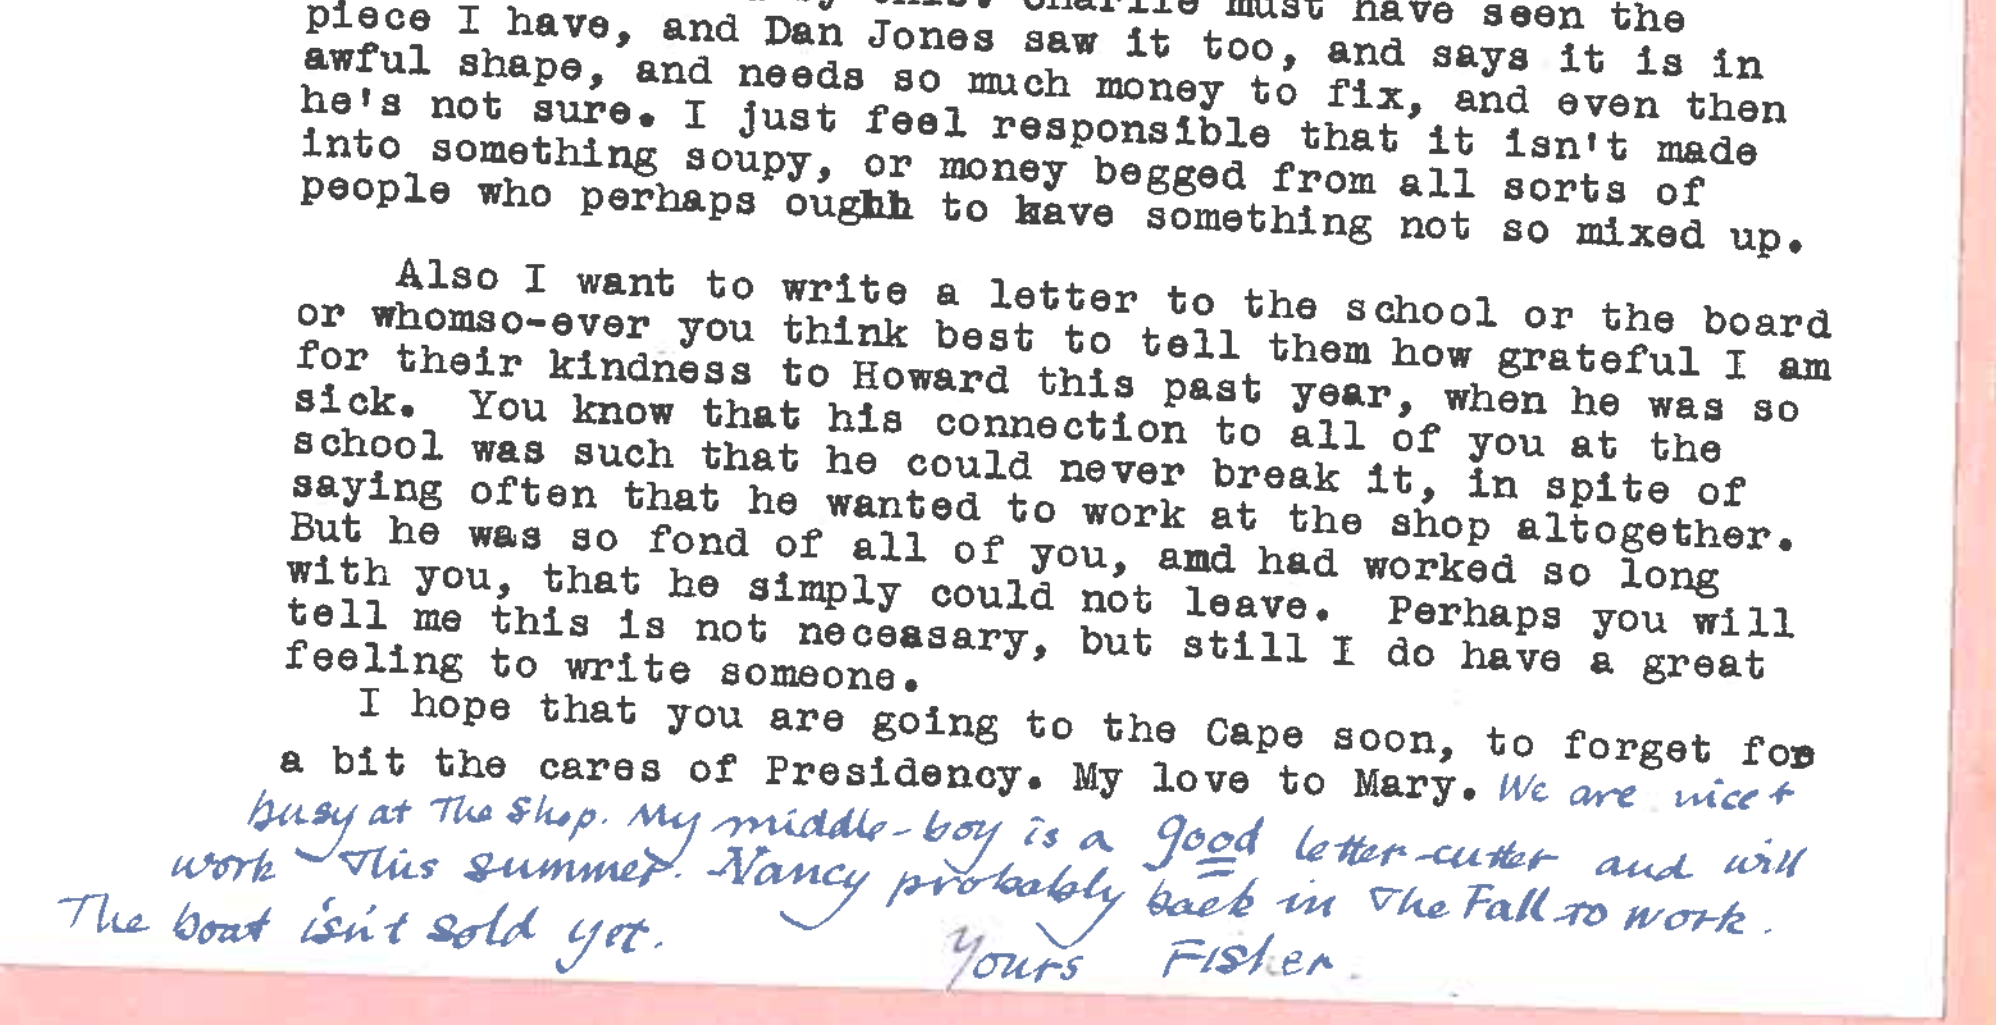 this. Charlie must have seen the
piece I have, and Dan Jones saw it too, and says it is in
awful shape, and needs so much money to fix, and even then
he's not sure. I just feel responsible that it isn't made
into something soupy, or money begged from all sorts of
people who perhaps oughh to have something not so mixed up.
Also I want to write a letter to the school or the board
or whomso-ever you think best to tell them how grateful I am
for their kindness to Howard this past year, when he was so
sick. You know that his connection to all of you at the
school was such that he could never break it, in spite of
saying often that he wanted to work at the shop altogether.
But he was so fond of all of you, amd had worked so long
with you, that he simply could not leave. Perhaps you will
tell me this is not necessary, but still I do have a great
feeling to write someone.
I hope that you are going to the Cape soon, to forget for
a bit the cares of Presidency. My love to Mary. We are nice +
busy at The Shop. My middle-boy is a good letter-cutter and will
work This summer. Nancy probably back in The Fall to work.
The boat isn't sold yet.
Yours Fisher